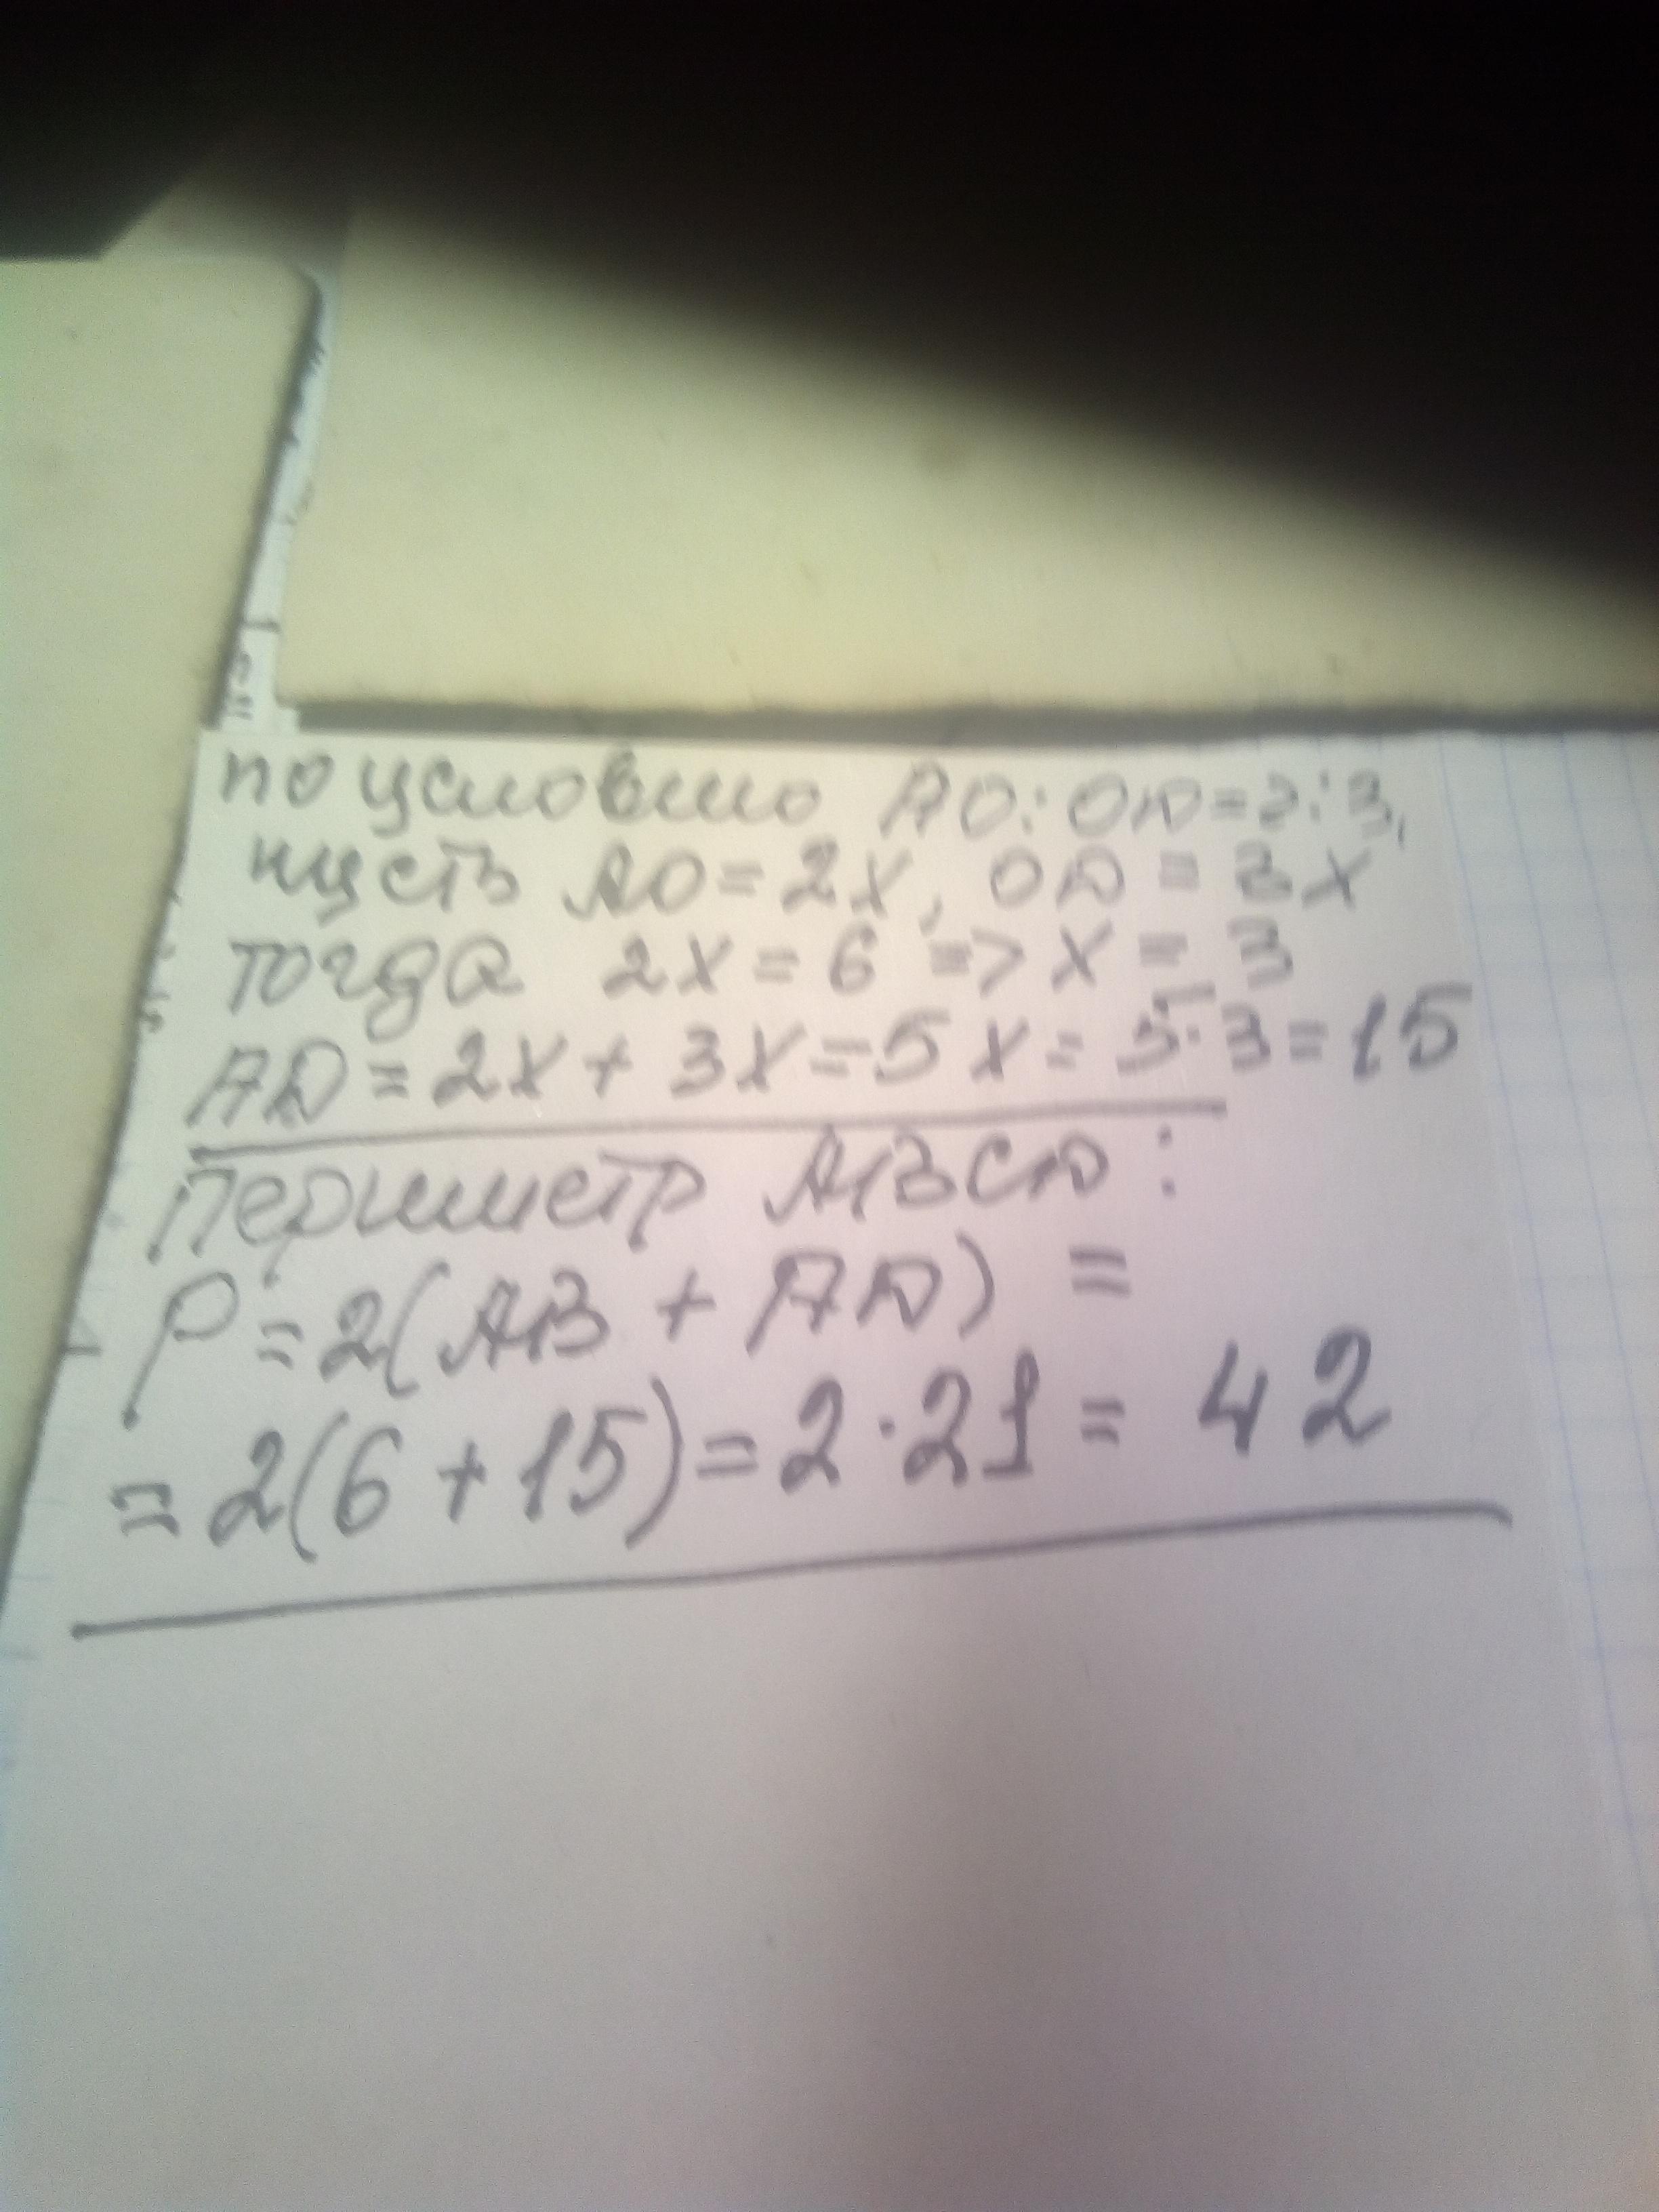 по условию AO:OD=2:3.
пусть AO=2x, OD=3x
тогда 2x=6 => x=3
AD=2x+3x=5x=5·3=15
Периметр ABCD:
P=2(AB+AD)=
=2(6+15)=2·21=42